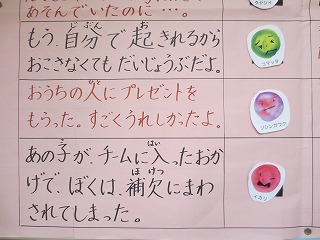 あそんでいたのに…。
もう、自分で起きれるから
じぶん
お
おこさなくてもだいじょうぶだよ。
おうちの人にプレゼントを
ひと
もらった。すごくうれしかったよ。
あの子が、チームに入ったおか
こ
はい
げで、ぼくは、補欠にまわ
ほけつ
されてしまった。
イカリ